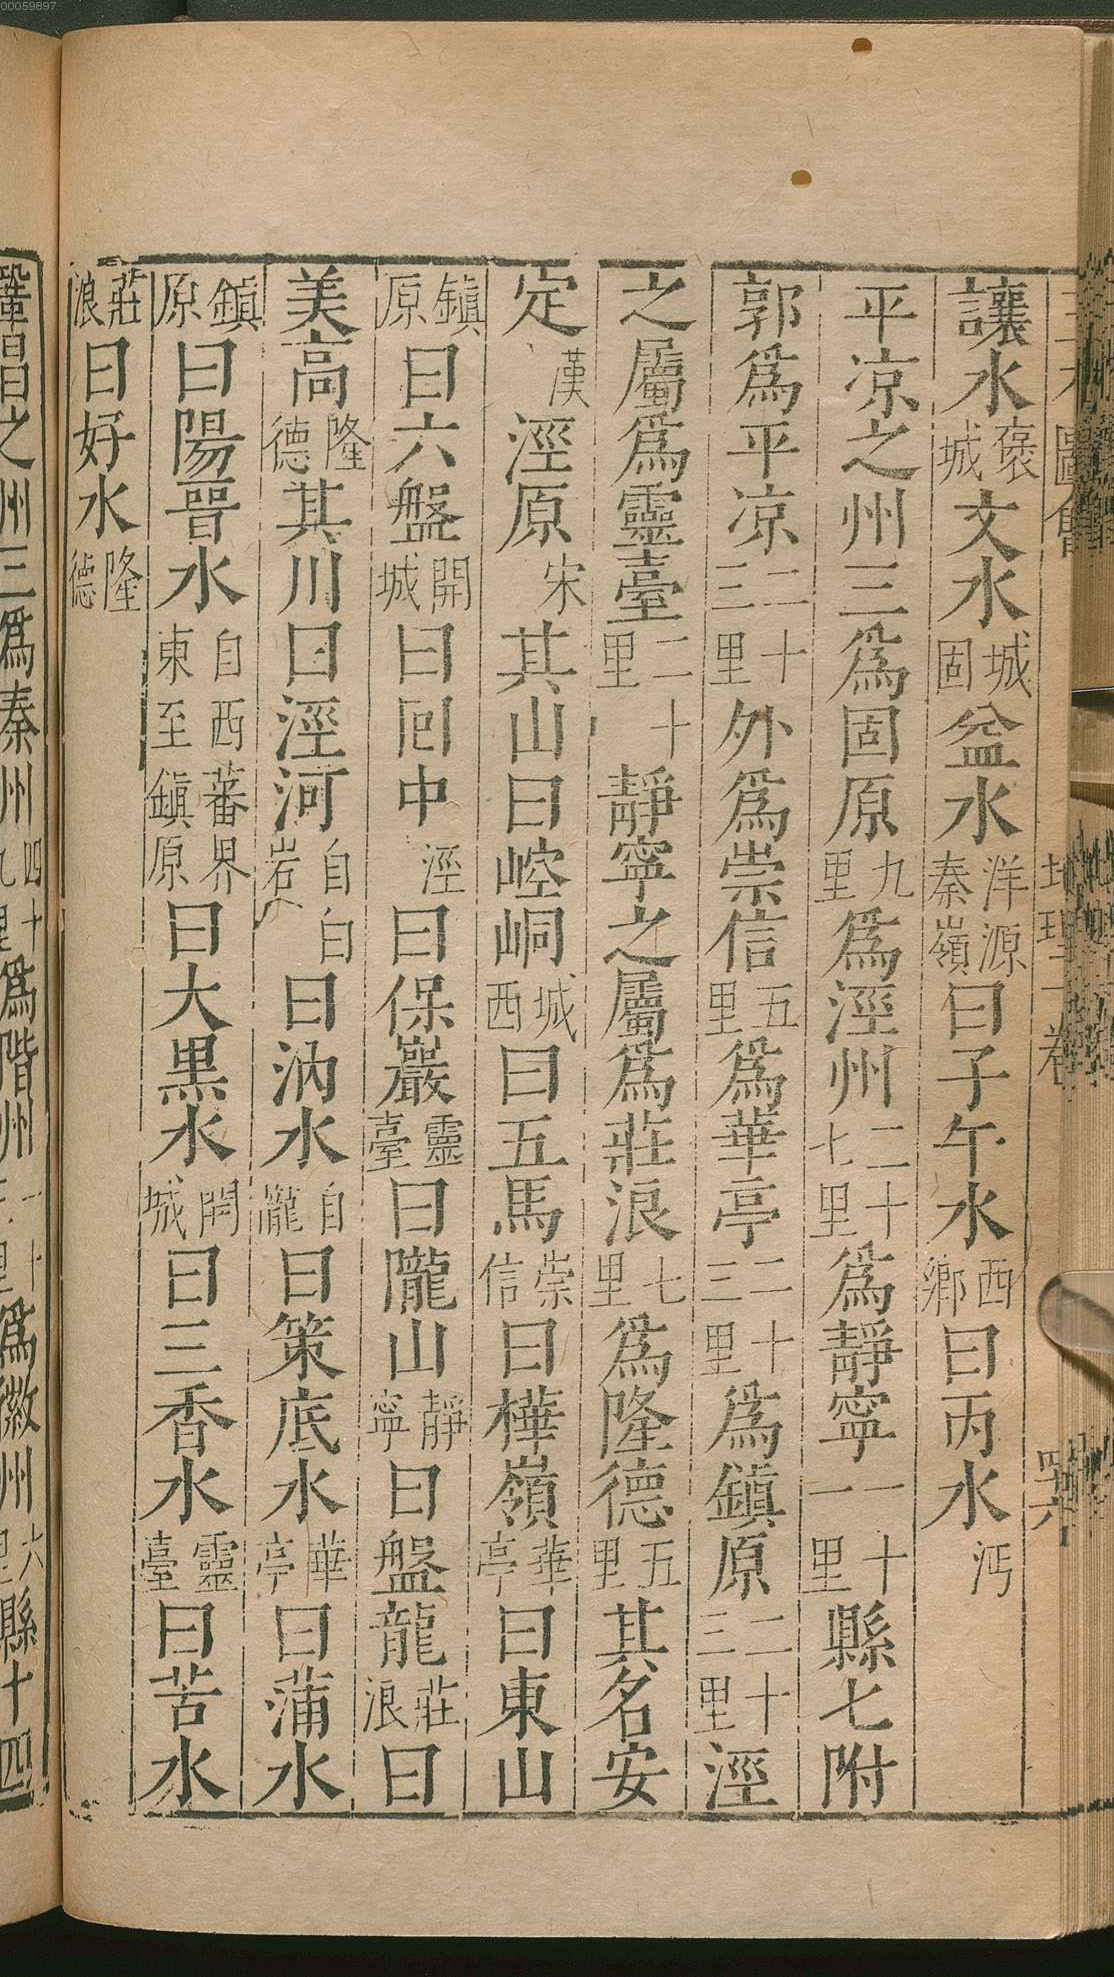 00059897
讓水褒城文水城固盆水洋源秦嶺曰子午水西鄉曰丙水沔
平凉之州三爲固原九里爲涇州二十七里爲靜寧一十一里縣七附
郭爲平凉二十三里外爲崇信五里爲華亭二十三里爲鎮原二十三里涇
之屬爲靈臺二十二里靜寧之屬爲莊浪七里爲隆德五里其名安
定漢涇原宋其山曰崆峒城西曰五馬崇信曰樺嶺華亭曰東山
鎮原曰六盤開城曰囘中涇曰保巖靈臺曰隴山靜寧曰盤龍莊浪曰
美高隆德其川曰涇河自白岩曰汭水自隴曰策底水華亭曰蒲水
鎮原曰陽晉水自西蕃界東至鎮原曰大黑水開城曰三香水靈臺曰苦水
莊浪曰好水隆德
鞏昌之州三爲秦州四十九里爲階州爲徽州六里縣十四